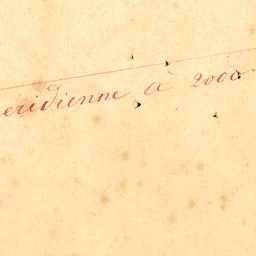 eridienne à 2000